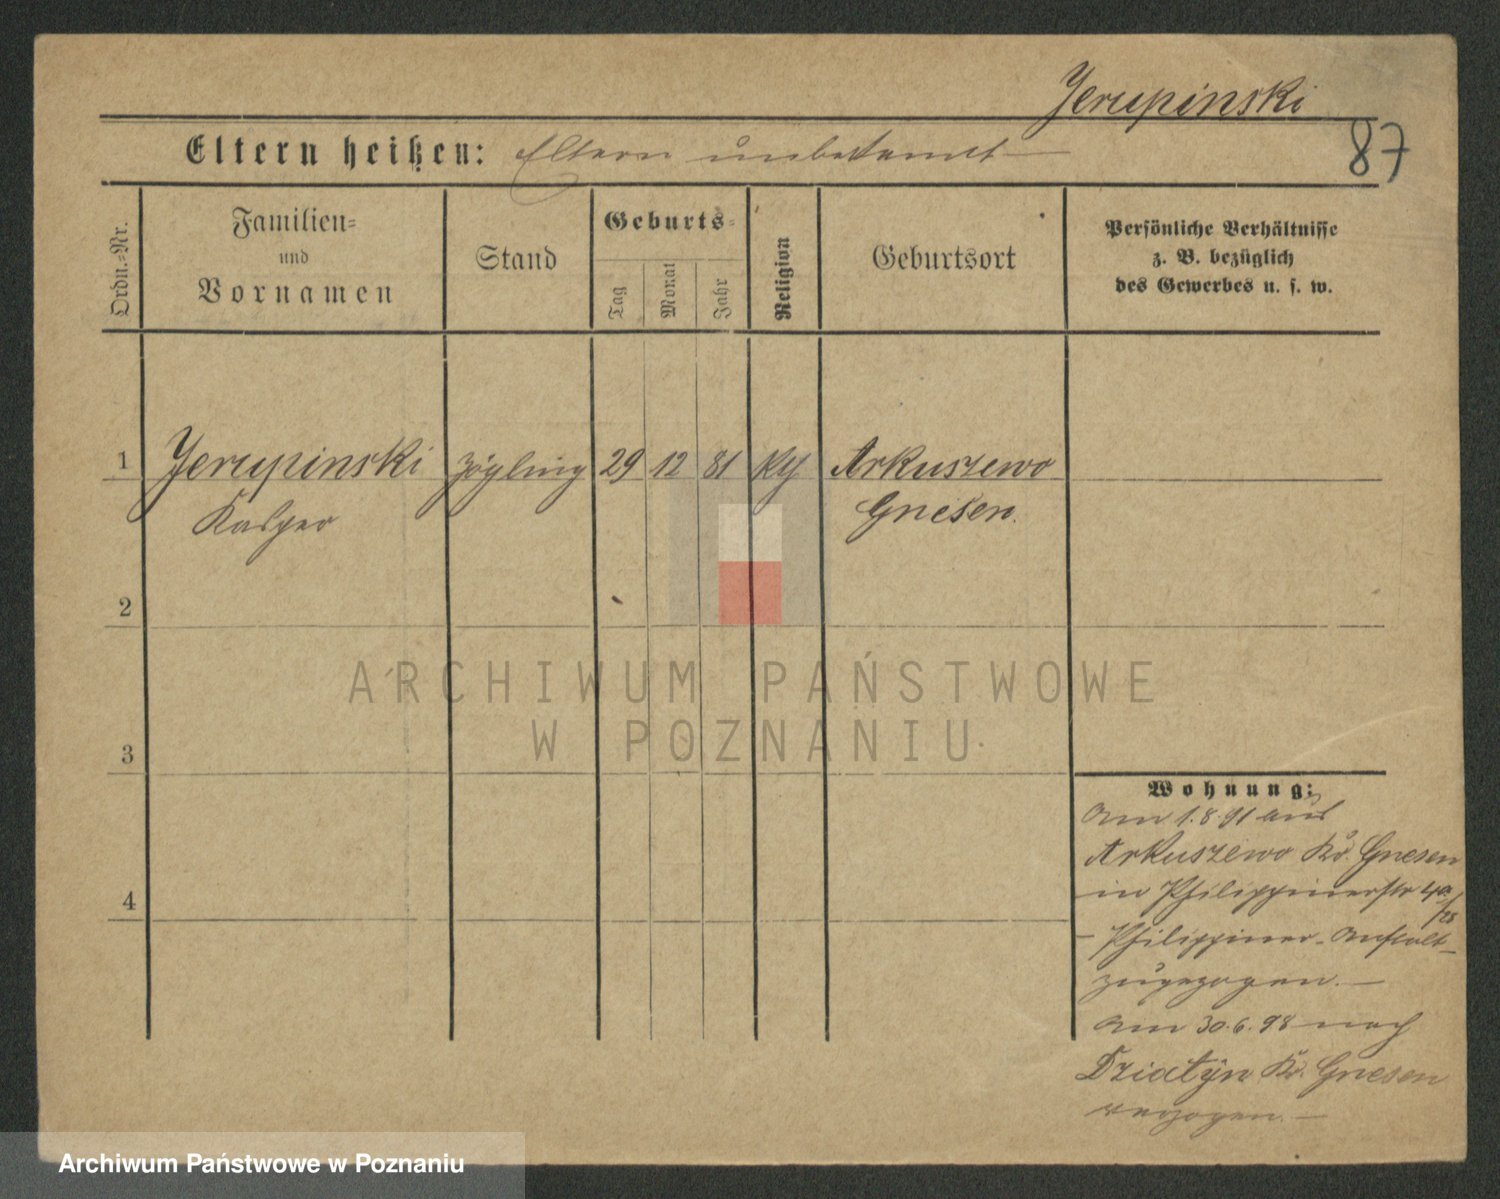 Jerupinski
87
Eltern heißen: Eltern unbekannt
Ordn.-Nr.
Familien-
und
Vornamen
Stand
Geburts-
Tag
Monat
Jahr
Religion
Geburtsort
Persönliche Verhältnisse
z. B. bezüglich
des Gewerbes u. s. w.
1 Jerupinski Zögling 29 12 81 Arkuszewo
Kasper Gnesen.
2
3
4
ARCHIWUM PAŃSTWOWE
W POZNANIU
Wohnung:
Am 1.8.91 aus
Arkuszewo Kr. Gnesen
in Philippinerstr
Philippiner-Anstalt
zugezogen.
Am 30.6.98 nach
Dziatyn Kr. Gnesen
verzogen.
Archiwum Państwowe w Poznaniu